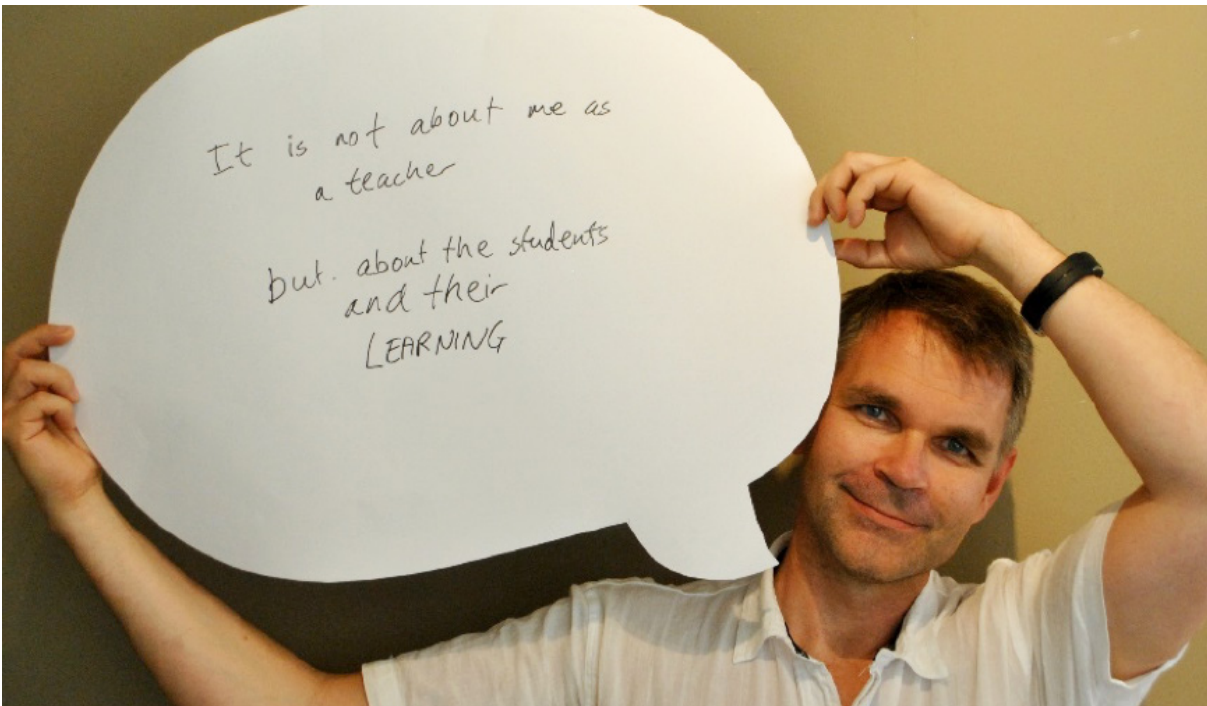 It is not about me as
a teacher
but. about the students
and their
LEARNING